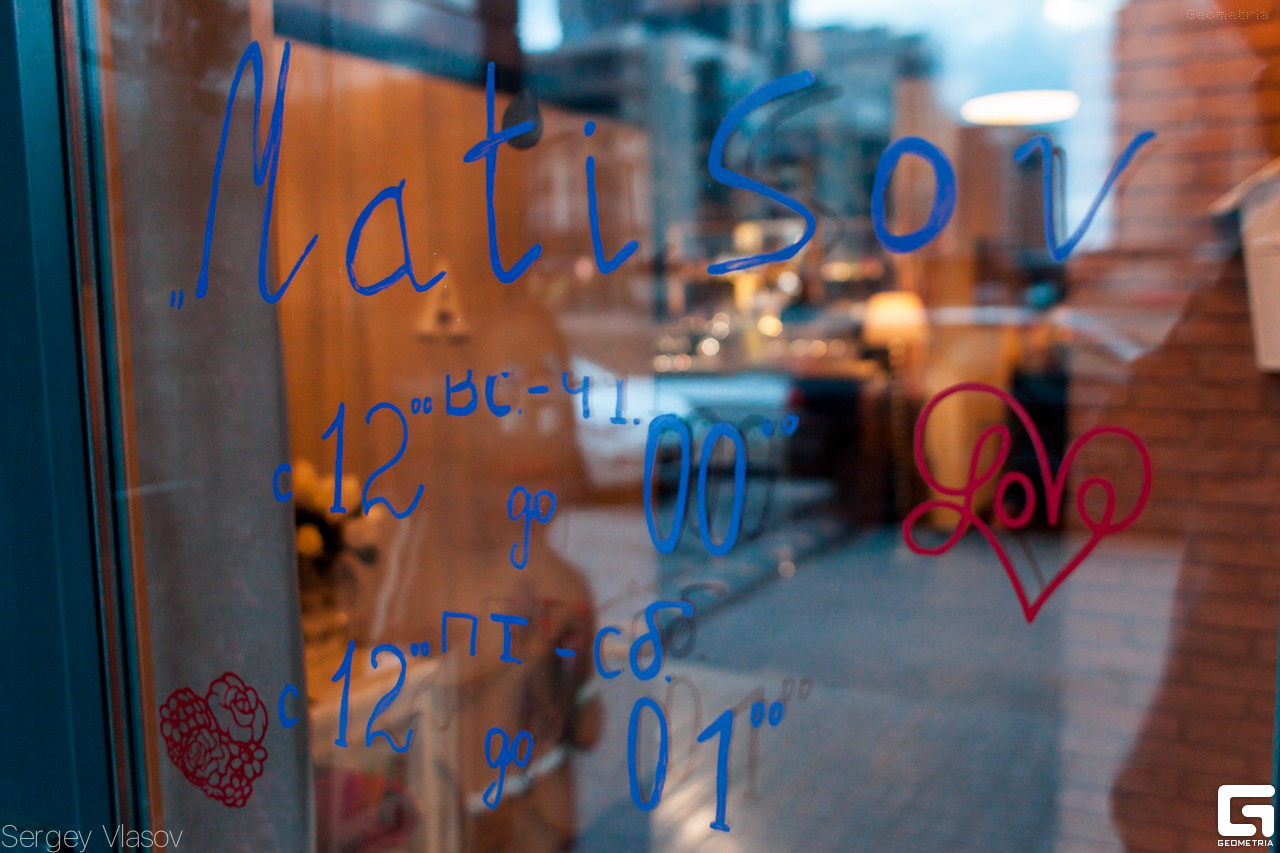 Geometria
„MatiSov
вс.-чт.
с 12°° до 00°°
пт-сб.
с 12°° до 01°°
Love
Sergey Vlasov
GEOMETRIA